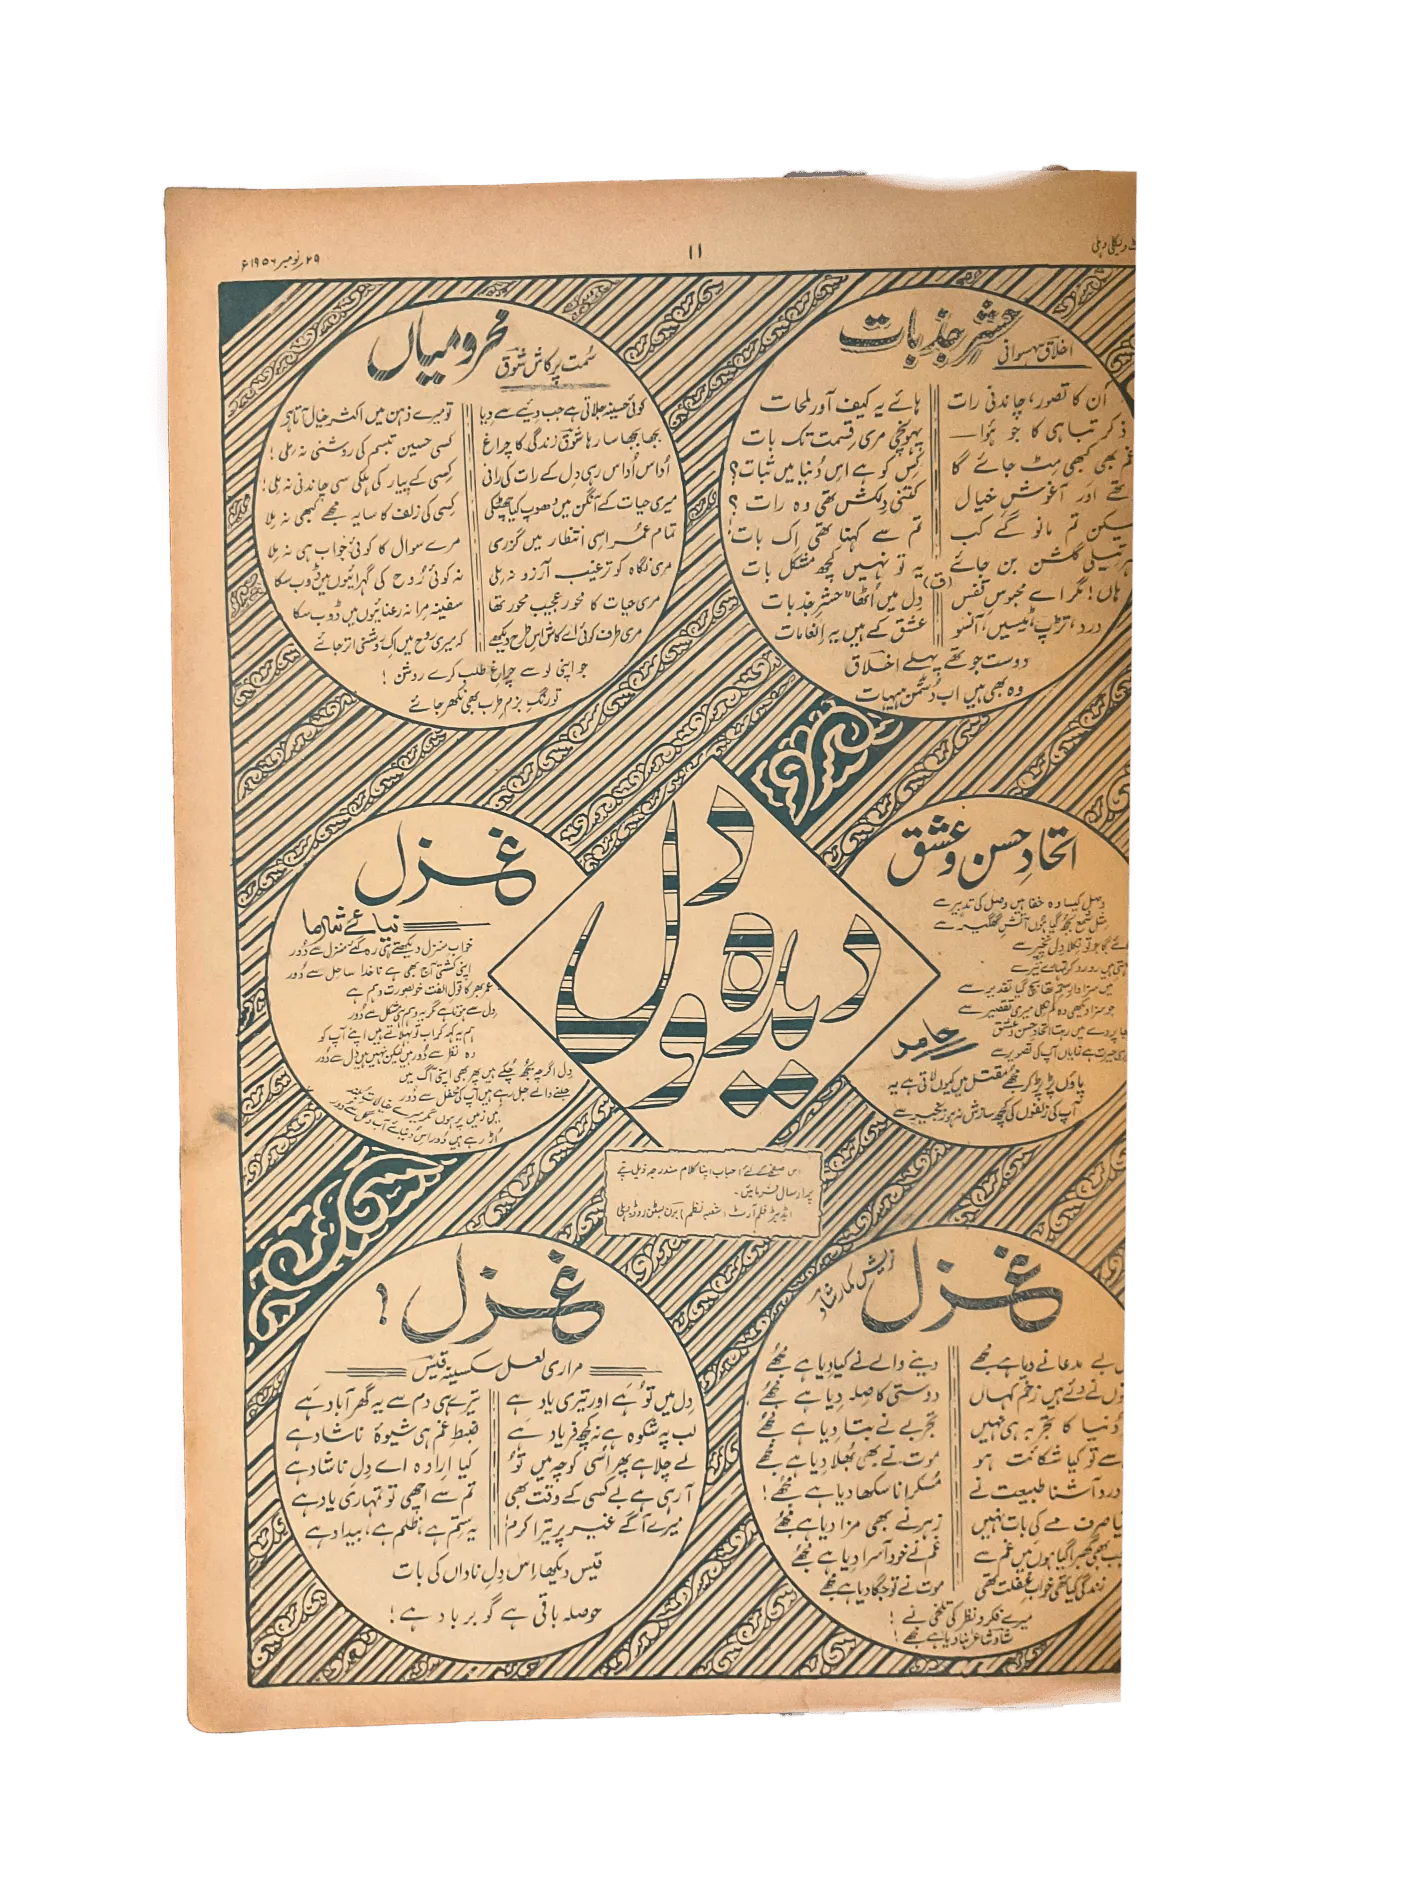 ویکلی دہلی
۱۱
۲۹ر نومبر ۱۹۵۶ء
حشرِ جذبات
اخلاق سہسوانی
اُن کا تصور، چاندنی رات
ہائے یہ کیف آور لمحات
ذکر تباہی کا جو ہُوا
پہونچی مری قسمت تک بات
غم بھی کبھی مِٹ جائے گا
کِس کو ہے اس دُنیا میں ثبات؟
تھے اور آغوشِ خیال
کتنی دِلکش تھی وہ رات؟
لیکن تم مانو گے کب
تم سے کہنا تھی اِک بات!
ہر تیلی گلشن بن جائے
یہ تو نہیں کچھ مشکل بات
(ق)
ہاں! مگر اے محبوسِ قفس
دِل میں اُٹھا "حشرِ جذبات
درد، تڑپ، ٹیسیں، آنسو
عشق کے ہیں یہ انعامات
دوست جو تھے پہلے اخلاق
وہ بھی ہیں اب دُشمن ہیہات
محرومیاں
سُمت پرکاش شوق
کوئی حسینہ جلاتی ہے جب دیئے سے دِیا
تو میرے ذہن میں اکثر خیال آتا ہے
بجھا بجھا سا رہا شوق زندگی کا چراغ
کسی حسین تبسم کی روشنی نہ ملی!
اُداس اُداس رہی دِل کے رات کی رانی
کِسی کے پیار کی ہلکی سی چاندنی نہ ملی!
میری حیات کے آنگن میں دھوپ کیا چھٹکی
کِسی کی زلف کا سایہ مجھے کبھی نہ مِلا
تمام عمُر اسی انتظار میں گزری
مرے سوال کا کوئی جواب ہی نہ مِلا
مری نگاہ کو ترغیب آرزو نہ ملی
نہ کوئی رُوح کی گہرائیوں میں ڈوب سکا
مری حیات کا محور عجیب محور تھا
سفینہ مرا نہ رعنائیوں میں ڈوب سکا
مری طرف کوئی اے کاش اس طرح دیکھے
کہ میری رُوح میں اِک روشنی اتر جائے
جو اپنی لو سے چراغِ طلب کرے روشن!
تو رنگِ بزمِ طرب بھی نکھر جائے
دیدہ و دل
اتحادِ حسن و عشق
حامد
وصل کیسا وہ خفا ہیں وصل کی تدبیر سے
شل شمع بجھ گیا ہُوں آتشِ گلگیر سے
جو تو نکلا دِل نخچیر سے
رو رو کر تمہارے تیر سے
میں سزاوارِ ستم تھا بچ گیا تقدیر سے
جو سزا دیکھی وہ کم نکلی میری تقصیر سے
پردے میں رہتا اتحادِ حسن و عشق
حیرت ہے نمایاں آپ کی تصویر سے
پاؤں پڑ پڑ کر مجھے مقتل میں کیوں لاتی ہے یہ
آپ کی زلفوں کی کچھ سازش نہ ہو زنجیر سے
غزل
نیائے شرما
خواب منزل دیکھتے ہی رہ گئے منزل سے دُور
اپنی کشتی آج بھی ہے ناخدا ساحل سے دُور
عمر بھر کا قول الفت خوبصورت وہم ہے
دِل سے ہوتا ہے مگر یہ وہم ہی مشکل سے دُور
ہم یہ کہہ کر اب تو بہلاتے ہیں اپنے آپ کو
وہ نظر سے دُور ہیں لیکن نہیں ہیں دِل سے دُور
دِل اگرچہ بجھ چُکے ہیں پھر بھی اپنی آگ میں
جلنے والے جل رہے ہیں آپ کی محفل سے دُور
ہیں زمیں پر ہوں مگر میرے خیالات
اُڑ رہے ہیں دُور اس دُنیائے آب و گل سے دُور
اس صفحے کے لئے احباب اپنا کلام مندرجہ ذیل پتے
پر ارسال فرمائیں۔
ایڈیٹر فلم آرٹ (شعبہ نظم) برن بسٹن روڈ دہلی
غزل
رُپش کمار شاد
بے مدعا نے دیا ہے مجھے
دینے والے نے کیا دیا ہے مجھے
نے دئے ہیں زخم کہاں
دوستی کا صلہ دیا ہے مجھے
دُنیا کا تجربہ ہی نہیں
تجربے نے بتا دیا ہے مجھے
سے تو کیا شکائت ہو
موت نے بھی بھُلا دیا ہے مجھے
درد آشنا طبیعت نے
مُسکرانا سکھا دیا ہے مجھے!
صرف مے کی بات نہیں
زہر نے بھی مزا دیا ہے مجھے
جب بھی گھبرا گیا ہوں میں غم سے
غم نے خود آسرا دِیا ہے مجھے
زندگی کیا تھی خوابِ غفلت تھی
موت نے تو جگا دیا ہے مجھے
میرے فکر و نظر کی تلخی نے!
شاد شاعر بنا دیا ہے مجھے!
غزل!
مراری لعل سکسینہ قیس
دِل میں تُو ہَے اور تیری یاد ہے
تیرے ہی دم سے یہ گھر آباد ہے
لب پہ شکوہ ہے نہ کچھ فریاد ہَے
ضبطِ غم ہی شیوۂ ناشاد ہے
لے چلا ہے پھر اُسی کوچہ میں تُو
کیا ارادہ اے دِلِ ناشاد ہے
آ رہی ہے بے کسی کے وقت بھی
تم سے اچھی تو تمہاری یاد ہے
میرے آگے غیر پر تیرا کرم
یہ ستم ہے، ظلم ہے، بیداد ہے
قیس دیکھا، اس دِلِ ناداں کی بات
حوصلہ باقی ہے گو برباد ہے!